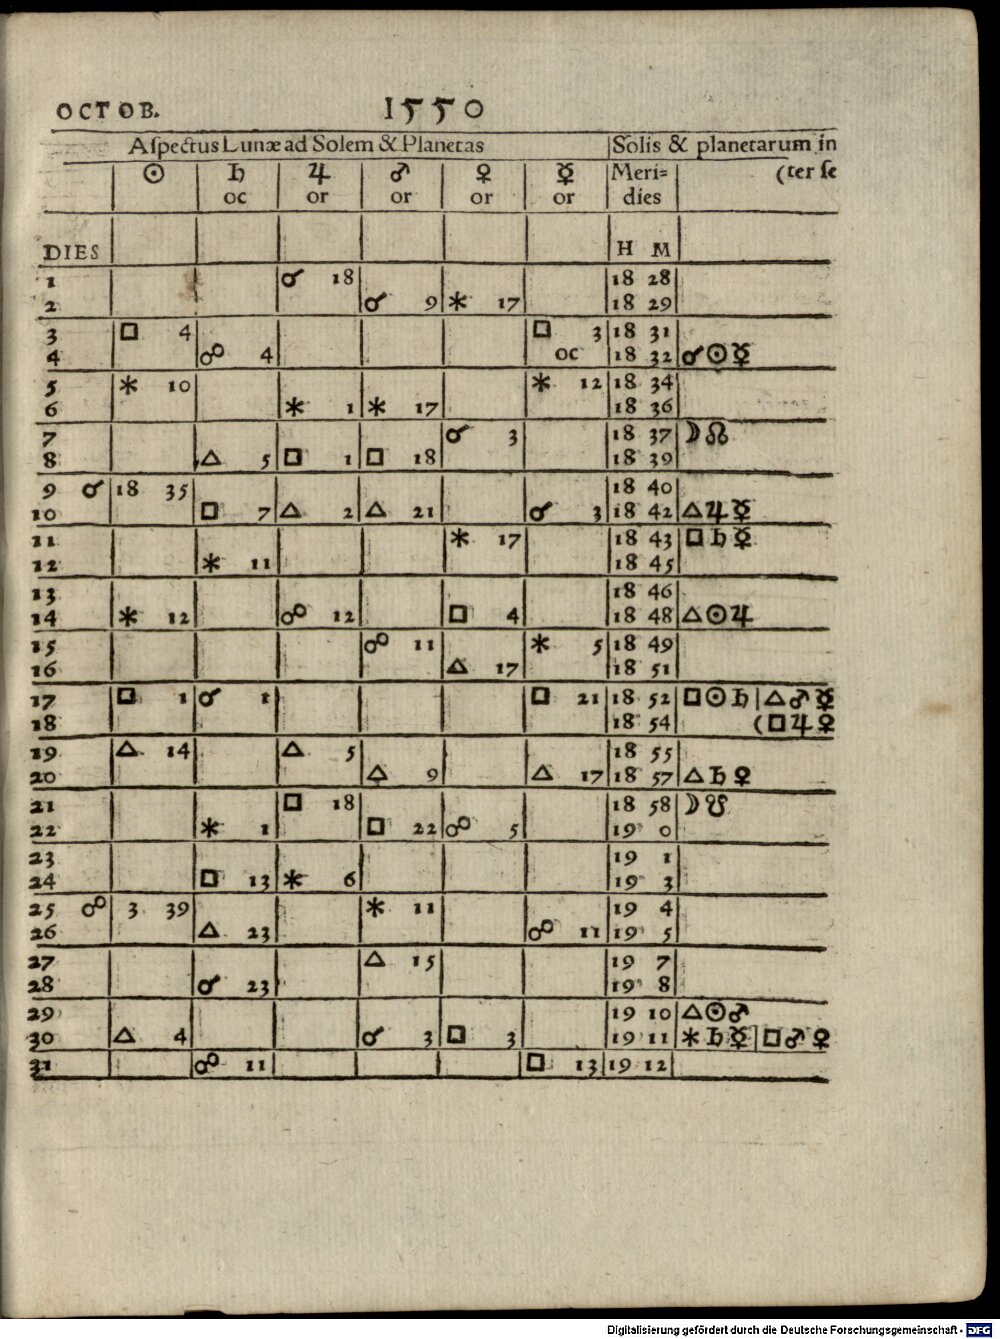 OCTOB. 1550
Aſpectus Lunæ ad Solem & Planetas | Solis & planetarum in
☉ | ♄ | ♃ | ♂ | ♀ | ☿ | Meri= | (ter ſe
oc | or | or | or | or | dies
DIES | H M
1 | | | ☌ 18 | | | | 18 28 |
2 | | | | ☌ 9 | ⚹ 17 | | 18 29 |
3 | □ 4 | | | | | □ 3 | 18 31 |
4 | | ☍ 4 | | | | oc | 18 32 | ☌ ☉ ☿
5 | ⚹ 10 | | | | | ⚹ 12 | 18 34 |
6 | | | ⚹ 1 | ⚹ 17 | | | 18 36 |
7 | | | | | ☌ 3 | | 18 37 | ☽ ☊
8 | | △ 5 | □ 1 | □ 18 | | | 18 39 |
9 ☌ | 18 35 | | | | | | 18 40 |
10 | | □ 7 | △ 2 | △ 21 | | ☌ 3 | 18 42 | △ ♃ ☿
11 | | | | | ⚹ 17 | | 18 43 | □ ♄ ☿
12 | | ⚹ 11 | | | | | 18 45 |
13 | | | | | | | 18 46 |
14 | ⚹ 12 | | ☍ 12 | | □ 4 | | 18 48 | △ ☉ ♃
15 | | | | ☍ 11 | | ⚹ 5 | 18 49 |
16 | | | | | △ 17 | | 18 51 |
17 | □ 1 | ☌ 1 | | | | □ 21 | 18 52 | □ ☉ ♄ | △ ♂ ☿
18 | | | | | | | 18 54 | (□ ♃ ♀
19 | △ 14 | | △ 5 | | | | 18 55 |
20 | | | | △ 9 | | △ 17 | 18 57 | △ ♄ ♀
21 | | | □ 18 | | | | 18 58 | ☽ ☋
22 | | ⚹ 1 | | □ 22 | ☍ 5 | | 19 0 |
23 | | | | | | | 19 1 |
24 | | □ 13 | ⚹ 6 | | | | 19 3 |
25 ☍ | 3 39 | | | ⚹ 11 | | | 19 4 |
26 | | △ 23 | | | | ☍ 11 | 19 5 |
27 | | | | △ 15 | | | 19 7 |
28 | | ☌ 23 | | | | | 19 8 |
29 | | | | | | | 19 10 | △ ☉ ♂
30 | △ 4 | | | ☌ 3 | □ 3 | | 19 11 | ⚹ ♄ ☿ | □ ♂ ♀
31 | | ☍ 11 | | | | □ 13 | 19 12 |
Digitalisierung gefördert durch die Deutsche Forschungsgemeinschaft - DFG